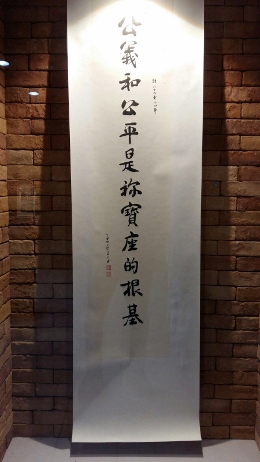 公義和公平是祢寶座的根基